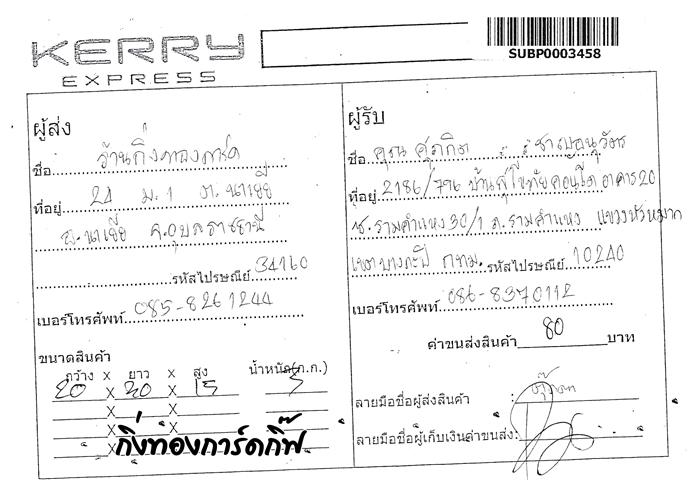 KERRY
EXPRESS
SUBP0003458
ผู้ส่ง
ชื่อ ร้านกิ่งทองการ์ด
ที่อยู่ 21 ม.1 ต.นาเยีย
อ.นาเยีย จ.อุบลราชธานี
รหัสไปรษณีย์ 34160
เบอร์โทรศัพท์ 085-8261244
ขนาดสินค้า
กว้าง x ยาว x สูง น้ำหนัก(ก.ก.)
20 x 20 x 15 5
x x
x x
x x
กิ่งทองการ์ดกิ๊ฟ
ผู้รับ
ชื่อ คุณ ศุภกิต ชาญอนุวัตร
ที่อยู่ 2186/796 บ้านสุโขทัยคอนโด อาคาร20
ซ.รามคำแหง 30/1 ถ.รามคำแหง แขวงหัวหมาก
เขตบางกะปิ กทม. รหัสไปรษณีย์ 10240
เบอร์โทรศัพท์ 086-8370112
ค่าขนส่งสินค้า 80 บาท
ลายมือชื่อผู้ส่งสินค้า :
ลายมือชื่อผู้เก็บเงินค่าขนส่ง: